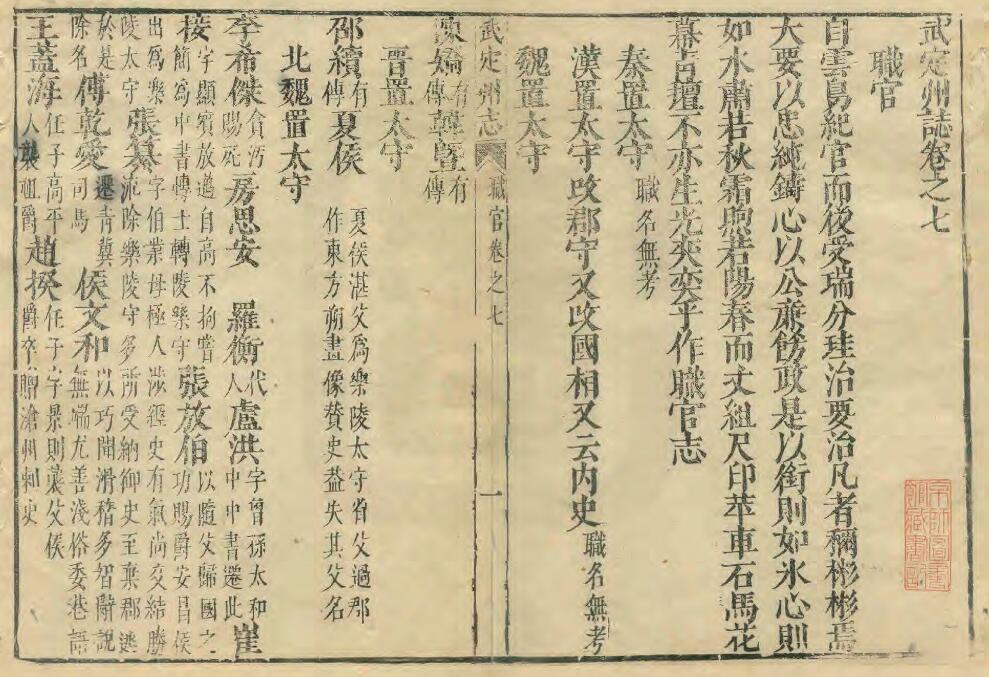 武定州誌卷之七
職官
自雲鳥紀官而後受瑞分珪治要治凡者稱彬彬焉
大要以忠純鑄心以公廉飭政是以銜則如氷心則
如水肅若秋霜煦若陽春而丈組尺印萃車石馬花
幕舌壇不亦生光奕奕乎作職官志
秦置太守職名無考
漢置太守攺郡守又攺國相又云内史職名無考
魏置太守
武定州志 職官卷之七 一
陳矯有傳韓曁有傳
晋置太守
邵續有傳夏侯夏侯湛父爲樂陵太守省父過郡作東方朔畫像賛史益失其父名
北魏置太守
李希傑貪汚賜死房思安 羅衡代人盧洪字曾孫太和中中書遷此崔
接字顯賓放邁自高不拘嘗簡爲中書博士轉陵樂守張放伯以隨父歸國之功賜爵安昌侯
出爲樂陵太守張纂字伯業母極人涉經史有氣尚交結勝流除樂陵守多所受納御史至棄郡逃
於是除名傅乾愛遷青冀司馬侯文和以巧聞滑稽多智辭説無端尤善淺俗委巷語
王蓋海任子高平人襲祖爵趙揆任子字景則襲父侯爵卒贈滄州刺史
京師圖書
館藏書記